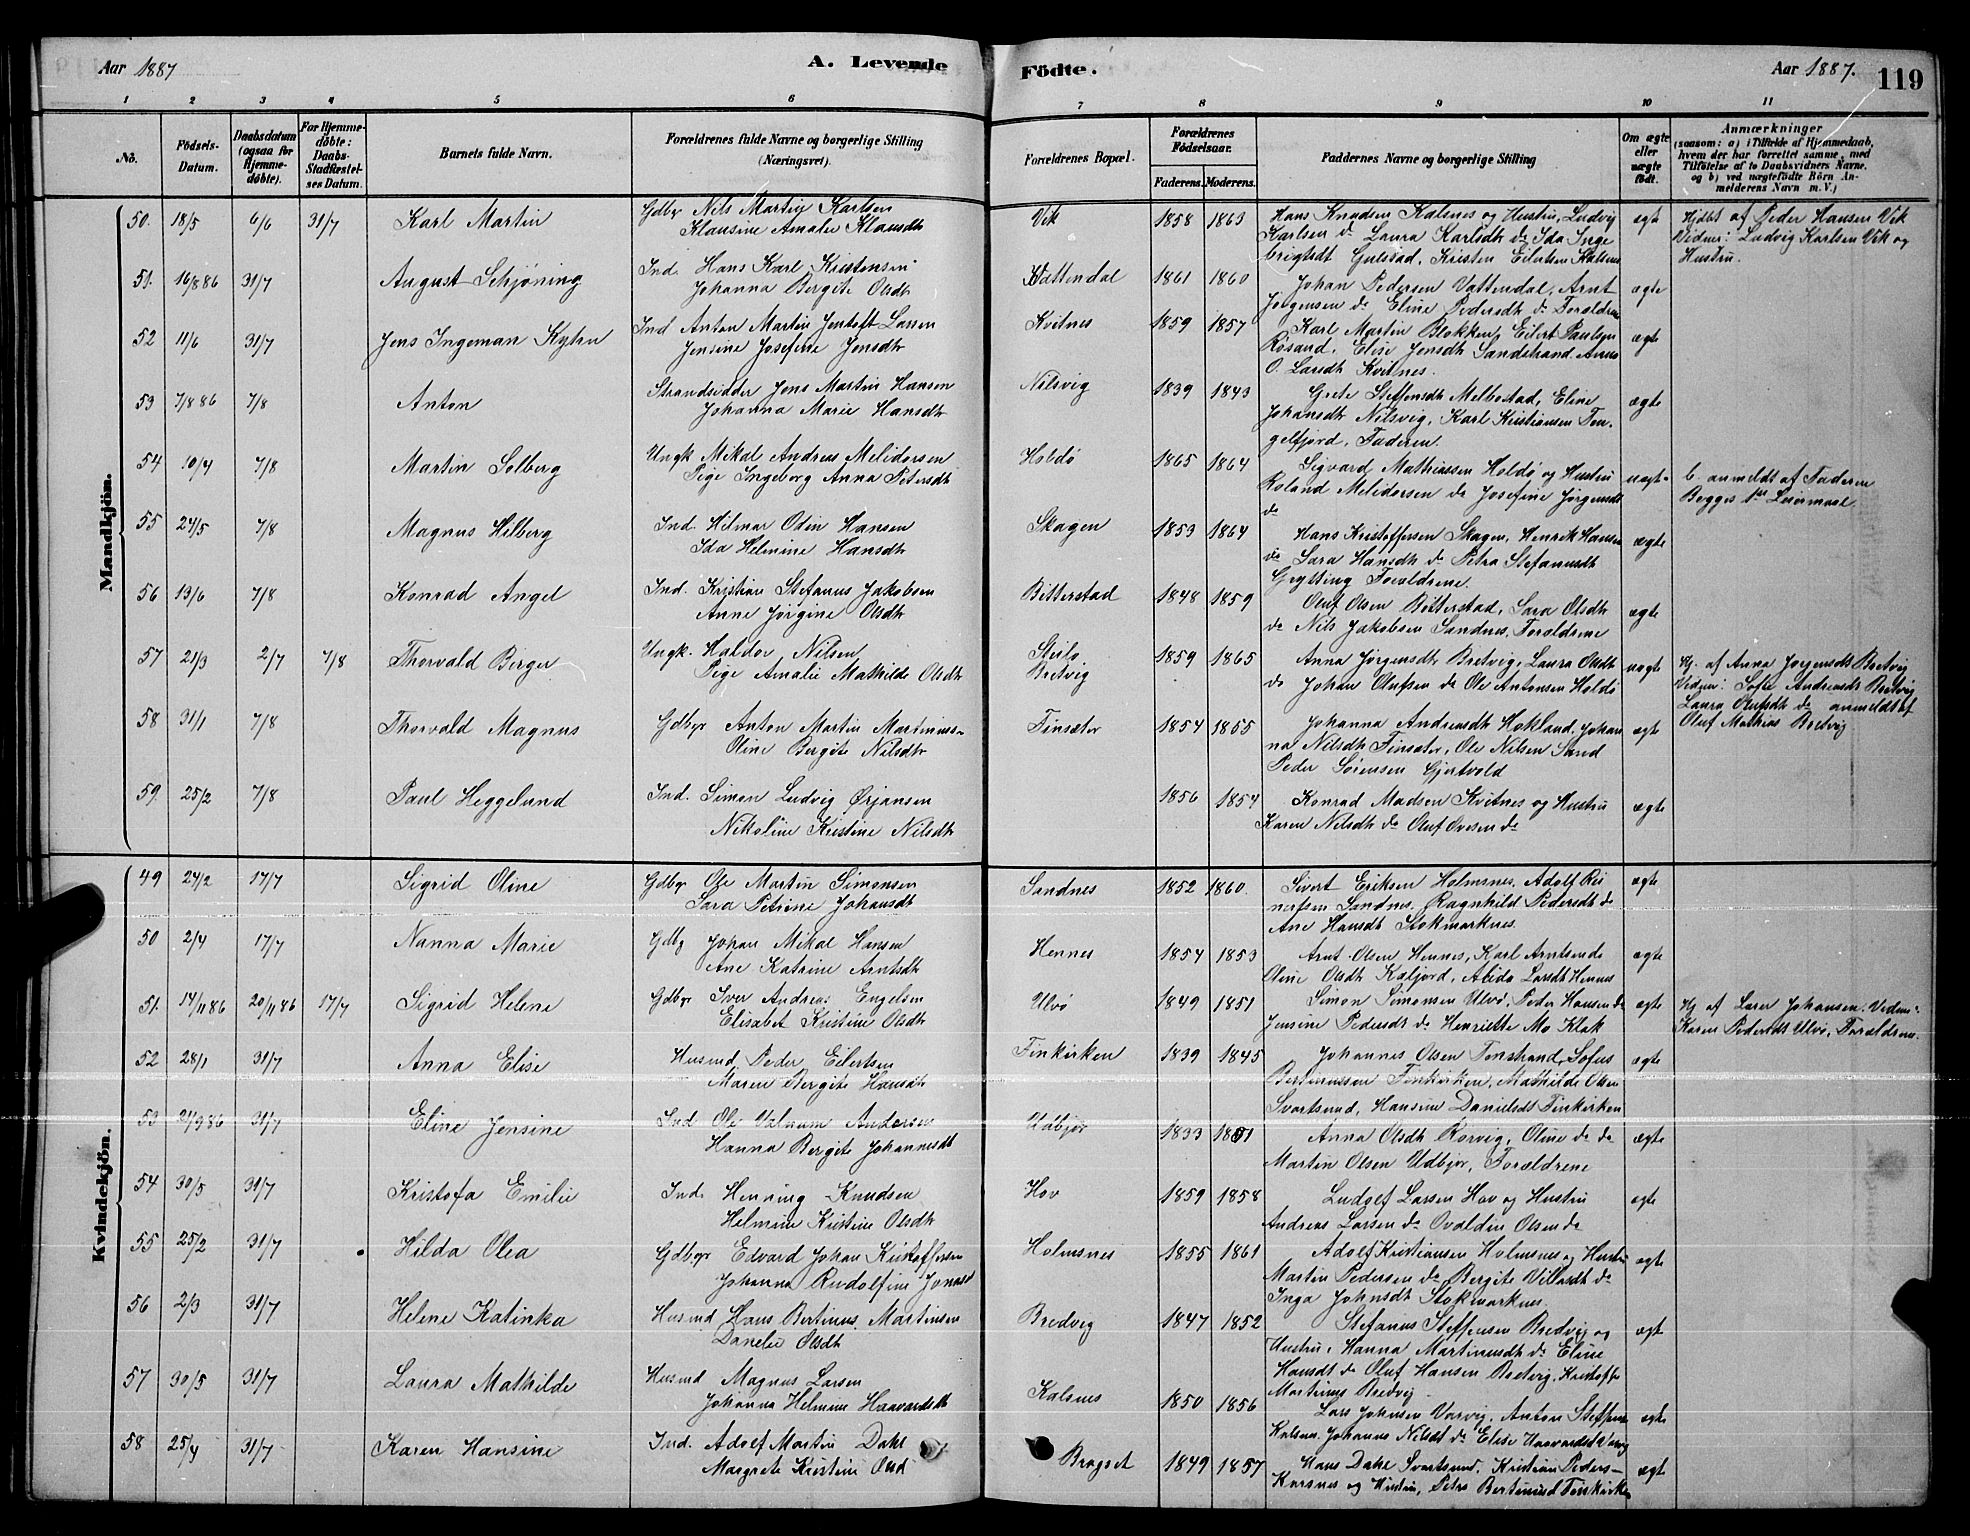 Aar 1887
A. Levende
Födte.
Aar 1887.
119
1 2 3 4 5 6 7 8 9 10 11
No.
Födsels-Datum.
Daabsdatum (ogsaa for Hjemme-döbte).
For Hjemme-döbte: Daabs-Stadfæstel-ses Datum.
Barnets fulde Navn.
Forældrenes fulde Navne og borgerlige Stilling (Næringsvei).
Forældrenes Bopæl.
Forældrenes Födselsaar.
Faderens. Moderens.
Faddernes Navne og borgerlige Stilling
Om ægte eller uægte födt.
Anmærkninger (saasom: a) i Tilfælde af Hjemmedaab, hvem der har forrettet samme, med Tilföielse af to Daabsvidners Navne, og b) ved uægtefödte Börn An-melderens Navn m. V.)
Mandkjön.
50. 18/5 6/6 31/7 Karl Martin
Gdbr Nils Martin Karlsen
Klausine Amalie Klausdtr
Vik 1858 1863
Hans Knudsen Kalsnes og Hustru, Ludvig
Karlsen do Laura Karlsdtr do Ida Inge
brigtsdt Gulstad, Kristen Eilertsen Kalsnes
ægte
Hjdbt af Peder Hansen Vik
Vidner: Ludvig Karlsen Vik og
Hustru.
51. 16/8 86 31/7 August Schjöning
Ind. Hans Karl Kristensen
Johanna Bergite Olsdtr
Vattendal 1861 1860
Johan Pedersen Vattendal, Arnt
Jørgensen do Eline Pedersdtr do Forældrene
ægte
52 11/6 31/7 Jens Ingeman Kyhn
Ind Anton Martin Jentoft Larsen
Jensine Josefine Jensdtr
Kvitnes 1859 1857
Karl Martin Blokken, Eilert Paulsen
Røsand, Elise Jensdtr Sandstrand Anna
O. Larsdtr Kvitnes.
ægte
53 7/8 86 7/8 Anton
Strandsidder Jens Martin Hansen
Johanna Marie Hansdtr
Nilsvig 1839 1843
Grete Steffensdtr Melbostad, Eline
Johansdtr Nilsvig, Karl Kristiansen Ten-
gelfjord, Faderen.
ægte
54 10/4 7/8 Martin Solberg
Ungk Mikal Andreas Melidorsen
Pige Ingeborg Anna Petersdtr
Holdö 1865 1864
Sigvard Mathiassen Holdö og Hustru
Roland Melidorsen do Josefine Jørgensdt
do
uægte
b. anmeldt af Faderen
Begges 1ste Leiermaal.
55 24/5 7/8 Magnus Hilberg
Ind. Hilmar Odin Hansen
Ida Helmine Hansdtr
Skagen 1853 1864
Hans Kristoffersen Skagen, Henrik Hansen
do Sara Hansdtr do Petra Stefanusdt
Forældrene.
ægte
56 13/6 7/8 Konrad Angel
Ind. Kristian Stefanus Jakobsen
Anne Jørgine Olsdtr
Bitterstad 1848 1859
Oluf Olsen Bitterstad, Sara Olsdtr
do Nils Jakobsen Sandnes, Forældrene
ægte
57 21/3 2/7 7/8 Thorvald Birger
Ungk. Haldor Nilsen
Pige Amalie Mathilde Olsdtr
Steilo
Bretvig 1859 1865
Anna Jørgensdtr Bretvig, Laura Olsdtr
do Johan Olufsen do Ole Antonsen Holdö
uægte
Hj. af Anna Jørgensdt Bretvig
Vidner: Sofie Andreasdt Bretvig
Laura Olufsdt do anmeldt af
Oluf Mathias Bretvig
58 31/1 7/8 Thorvald Magnus
Gdbr Anton Martin Martinuss.
Oline Bergite Nilsdtr
Finsæter 1854 1855
Johanna Andreasdtr Hokland, Johan
na Nilsdtr Finsæter, Ole Nilsen Sand
Peder Sørensen Gjertvold
ægte
59. 25/2 7/8 Paul Heggelund
Ind. Simon Ludvig Ørjansen
Nikoline Kristine Nilsdtr
1856 1854
Konrad Madsen Kvitnes og Hustru
Karen Nilsdtr do Oluf Ovesen do
ægte
Kvindekjön.
49 24/2 17/7 Sigrid Oline
Gdbr Ole Martin Simonsen
Sara Petrine Johansdt
Sandnes 1852 1860.
Sivert Eriksen Holmsnes, Adolf Rei
nertsen Sandnes, Ragnhild Pedersdt do
Ane Hansdt Stokmarknes.
ægte
50 2/4 17/7 Nanna Marie
Gdbr Johan Mikal Hansen
Ane Katrine Arntsdtr
Hennes 1854 1853
Arnt Olsen Hennes, Karl Arntsen do
Oline Olsdt Kaljord, Alida Larsdt Hennes
ægte
51. 14/11 86 20/11 86 17/7 Sigrid Helene
Gdbr Iver Andreas Engelsen
Elisabet Kristine Olsdtr
Ulvö 1849 1851
Simon Simonsen Ulvö, Peder Hansen do
Jensine Pedersdt do Henriette Mo Klak
ægte
Hj af Johansen. Vidner:
Karen Pedersdt Ulvö, Forældrene.
52 28/1 31/7 Anna Elise
Husmd Peder Eilertsen
Maren Bergite Hansdt
Finkirken 1839 1845
Johannes Olsen Tenstrand, Sofus
Bertinussen Finkirken, Mathilde Olsen
Svartsund, Hansine Danielsdt Finkirken
ægte
53 21/9 86 31/7 Eline Jensine
Ind Ole Valnum Andersen
Hanna Bergite Johannesdt
Udbjør 1833 1851
Anna Olsdtr Rorvig, Oline do do
Martin Olsen Udbjør, Forældrene
ægte
54 30/5 31/7 Kristofa Emilie
Ind. Henning Knudsen
Helmine Kristine Olsdtr
Hov 1859 1858
Ludolf Larsen Hov og Hustru
Andreas Larsen do Ovaldin Olsen do
ægte
55 25/2 31/7 Hilda Olea
Gdbgr Edvard Johan Kristoffersen
Johanna Rudolfine Jonasd
Holmsnes 1855 1861
Adolf Kristiansen Holmsnes og Hustru
Martin Pedersen do Bergite Villasdt do
Inga Johnsdt Stokmarknes
ægte
56 2/3 31/7 Helene Katinka
Husmd Hans Bertinus Martinsen
Danelie Olsdt
Bredvig 1847 1852
Stefanus Steffensen Bredvig og
Hustru, Hanna Martinusdt do Eline
Hansdt do Oluf Hansen Bretvig, Kristoffer
Martinus Bredvig
ægte
57 30/5 31/7 Laura Mathilde
Husmd Magnus Larsen
Johanna Helmine Haavardsdt
Kalsnes 1850 1856
Lars Johnsen Varvig, Anton Steffens
Kalsnes, Johanna Nilsdt do Elise Haavardsdt Varvig
ægte
58 25/4 31/7 Karen Hansine
Ind. Adolf Martin Dahl
Margrete Kristine Olsd
Brogset 1849 1857
Hans Dahl Svartsund, Kristian Peders-
Karsnes og Hustru, Petra Bertinusd Finkirken
ægte